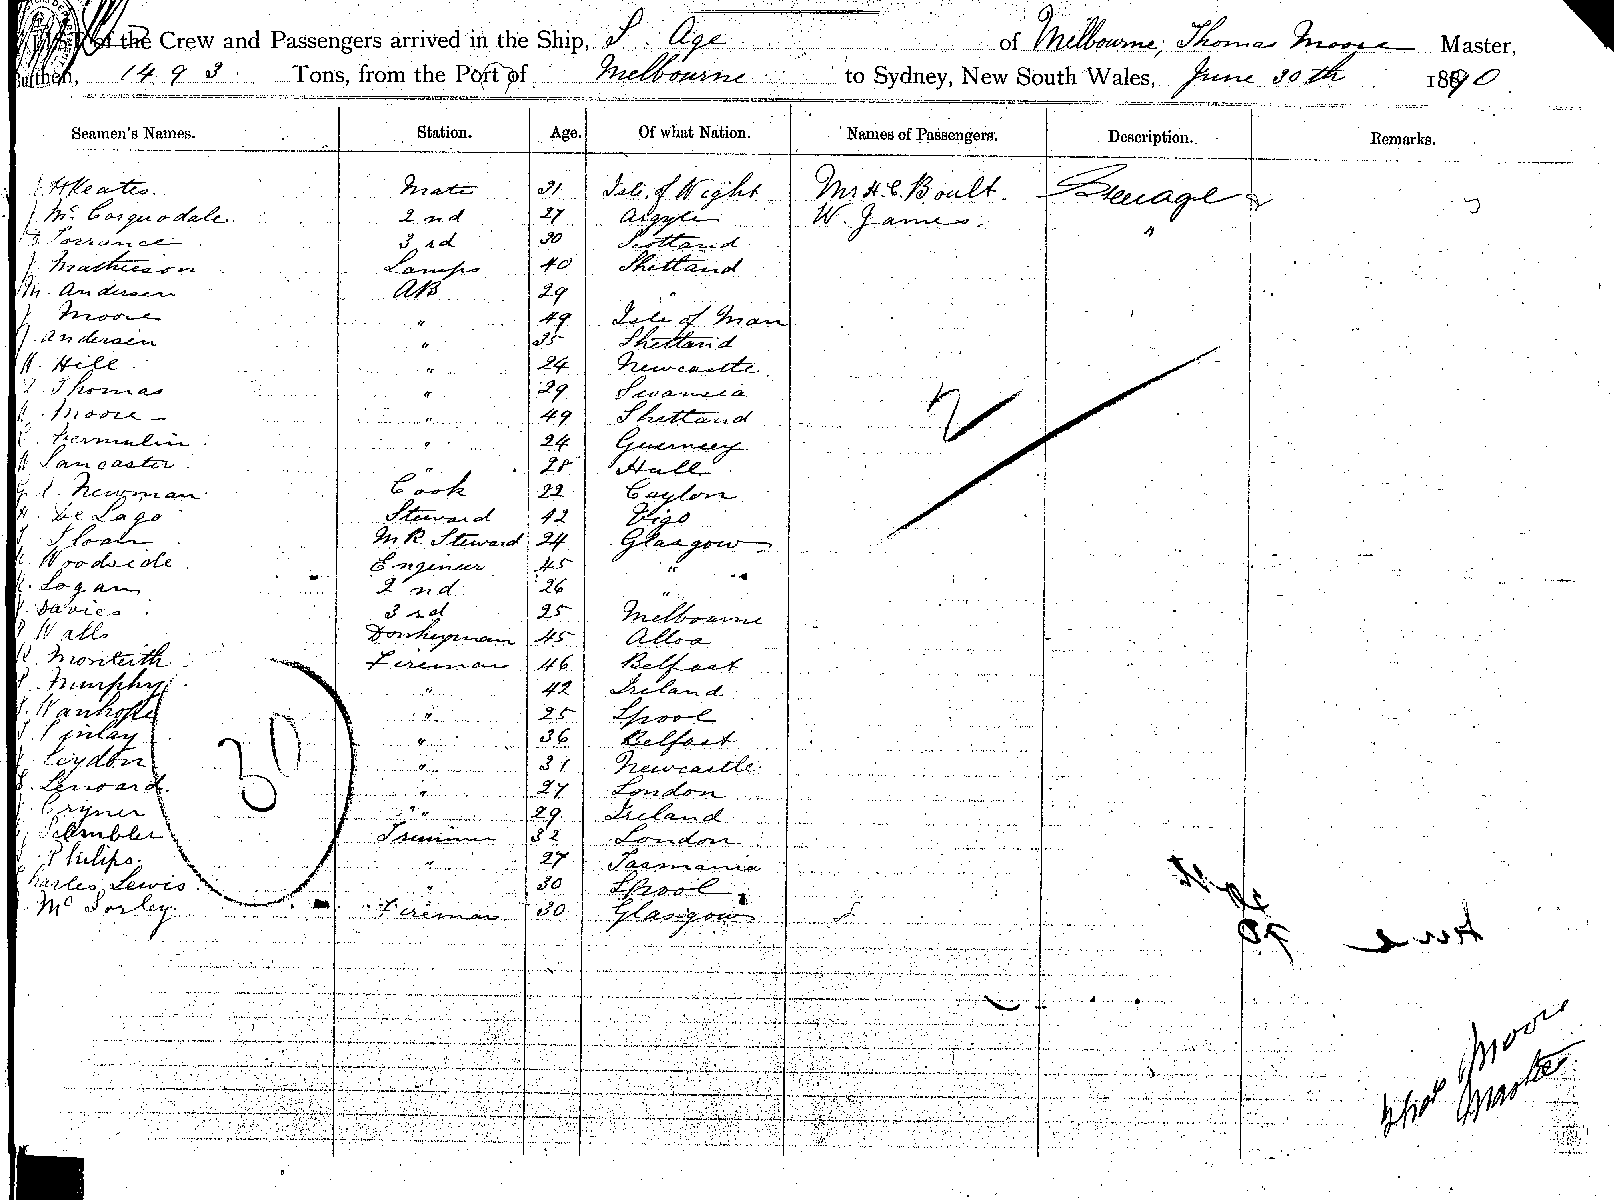 of the Crew and Passengers arrived in the Ship, S. Age of Melbourne, Thomas Moore Master,
Burthen, 1493 Tons, from the Port of Melbourne to Sydney, New South Wales, June 30th 1890
Seamen's Names. Station. Age. Of what Nation. Names of Passengers. Description. Remarks.
Keates Mate 31 Isle of Wight Mr H. C. Boult. Steerage
J Mc Corquodale 2nd 27 Argyle W. James. "
Torrance 3rd 30 Scotland
J Mathieson Lamps 40 Shetland
M. Andersen AB 29 "
J Moore " 49 Isle of Man
Andersen " 35 Shetland
H. Hill " 24 Newcastle
Thomas " 29 Swansea
Moore " 49 Shetland
" 24 Guernsey
Lancaster " 28 Hull
Newman Cook 22 Ceylon
De Lago Steward 42 Vigo
Sloan M R Steward 24 Glasgow
Woodside Engineer 45 "
Logan 2nd 26 "
Davies 3rd 25 Melbourne
Walls Donkeyman 45 Alloa
Monteith Fireman 46 Belfast
Murphy " 42 Ireland
Wanhope " 25 Lpool
Finlay " 36 Belfast
Leydon " 31 Newcastle
Lenard " 27 London
Cryner " 29 Ireland
Scambler Trimmer 32 London
Philips " 27 Tasmania
Charles Lewis " 30 Lpool
Mc Sorley Fireman 30 Glasgow
2
30
Thos Moore
Master